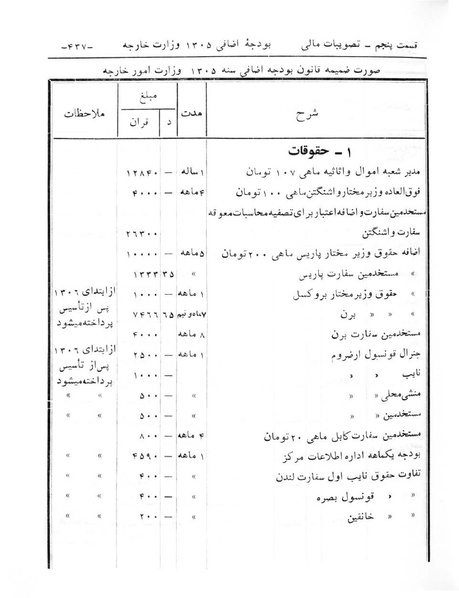 قسمت پنجم - تصویبات مالی بودجهٔ اضافی ۱۳۰۵ وزارت خارجه -۴۳۷-
صورت ضمیمه قانون بودجه اضافی سنه ۱۳۰۵ وزارت امور خارجه
شرح مدت مبلغ ملاحظات
د قران
۱ - حقوقات
مدیر شعبه اموال و اثاثیه ماهی ۱۰۷ تومان ۱ ساله - ۱۲۸۴۰
فوق‌العاده وزیر مختار واشنگتن ماهی ۱۰۰ تومان ۴ ماهه - ۴۰۰۰
مستخدمین سفارت و اضافه اعتبار برای تصفیه محاسبات معوقه
سفارت واشنگتن ۲۶۳۰۰
اضافه حقوق وزیر مختار پاریس ماهی ۲۰۰ تومان ۵ ماهه - ۱۰۰۰۰
» مستخدمین سفارت پاریس » ۳۵ ۱۳۳۳
» حقوق وزیر مختار بروکسل ۱ ماهه - ۱۰۰۰ از ابتدای ۱۳۰۶
پس از تأسیس
» » برن ۷ماه و نیم ۶۵ ۷۴۶۶ پرداخته میشود
مستخدمین سفارت برن ۸ ماهه ۴۰۰۰
جنرال قونسول ارضروم ۱ ماهه - ۲۵۰۰ از ابتدای ۱۳۰۶
نایب » » » - ۱۰۰۰ پس از تأسیس
پرداخته میشود
منشی محلی » » » - ۵۰۰ » »
مستخدمین » » » - ۵۰۰ » »
مستخدمین سفارت کابل ماهی ۲۰ تومان ۴ ماهه - ۸۰۰
بودجه یکماهه اداره اطلاعات مرکز ۱ ماهه - ۴۵۹۰ » »
تفاوت حقوق نایب اول سفارت لندن » - ۴۰۰ » »
» » قونسول بصره » - ۴۰۰ » »
» » خانقین » - ۲۰۰ » »